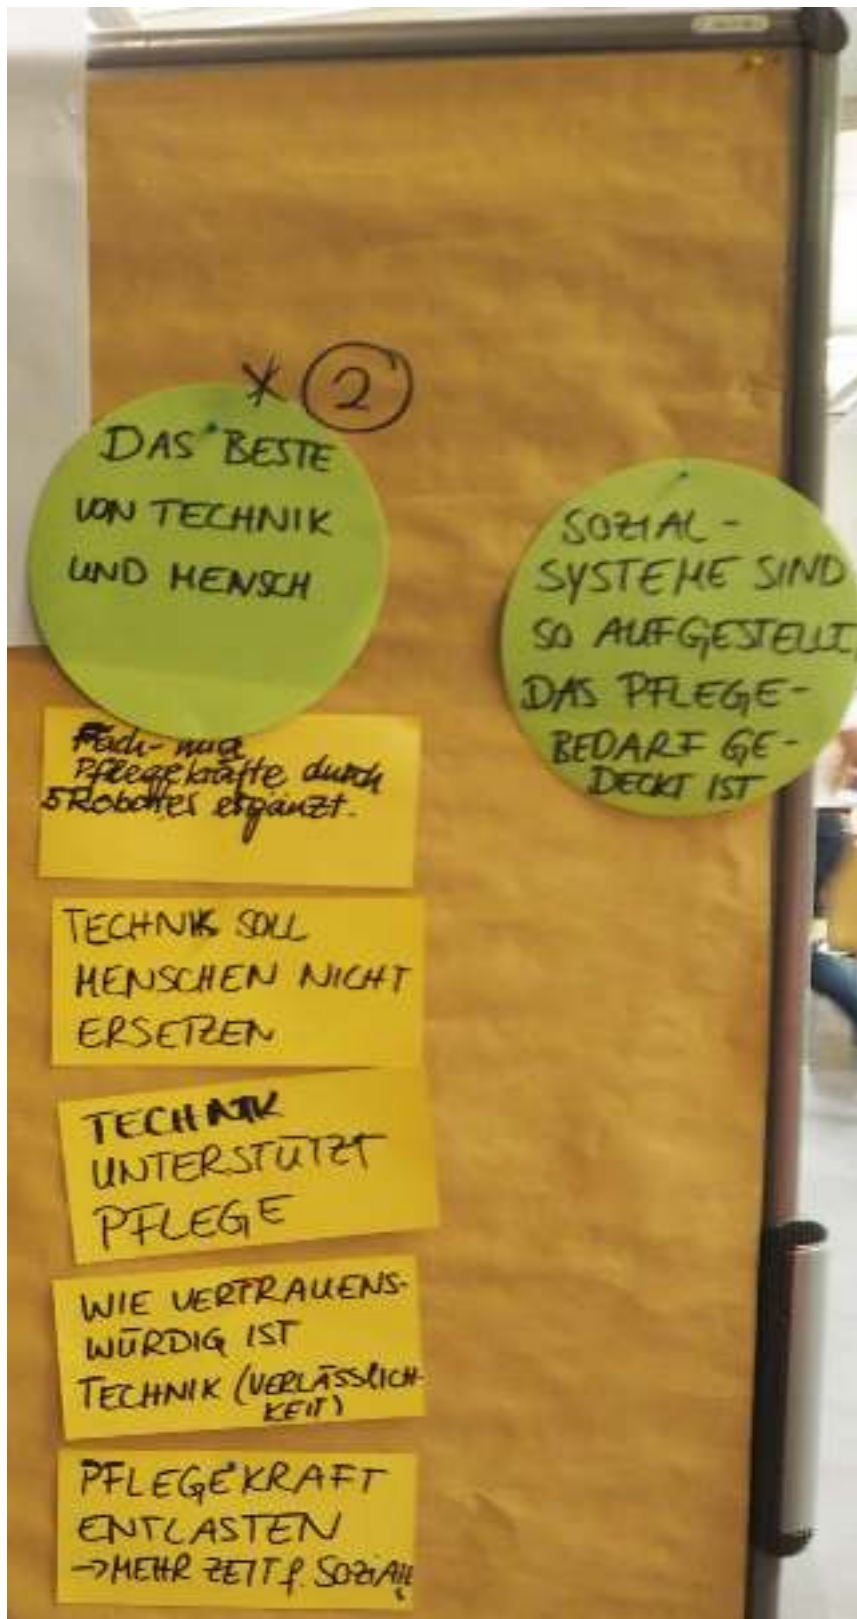 * 2
DAS BESTE
VON TECHNIK
UND MENSCH
SOZIAL-
SYSTEME SIND
SO AUFGESTELLT,
DAS PFLEGE-
BEDARF GE-
DECKT IST
Pflegekräfte durch
Robotter ergänzt.
TECHNIK SOLL
MENSCHEN NICHT
ERSETZEN
TECHNIK
UNTERSTÜTZT
PFLEGE
WIE VERTRAUENS-
WÜRDIG IST
TECHNIK (VERLÄSSLICH-
KEIT)
PFLEGEKRAFT
ENTLASTEN
→MEHR ZEIT f. SOZIALE